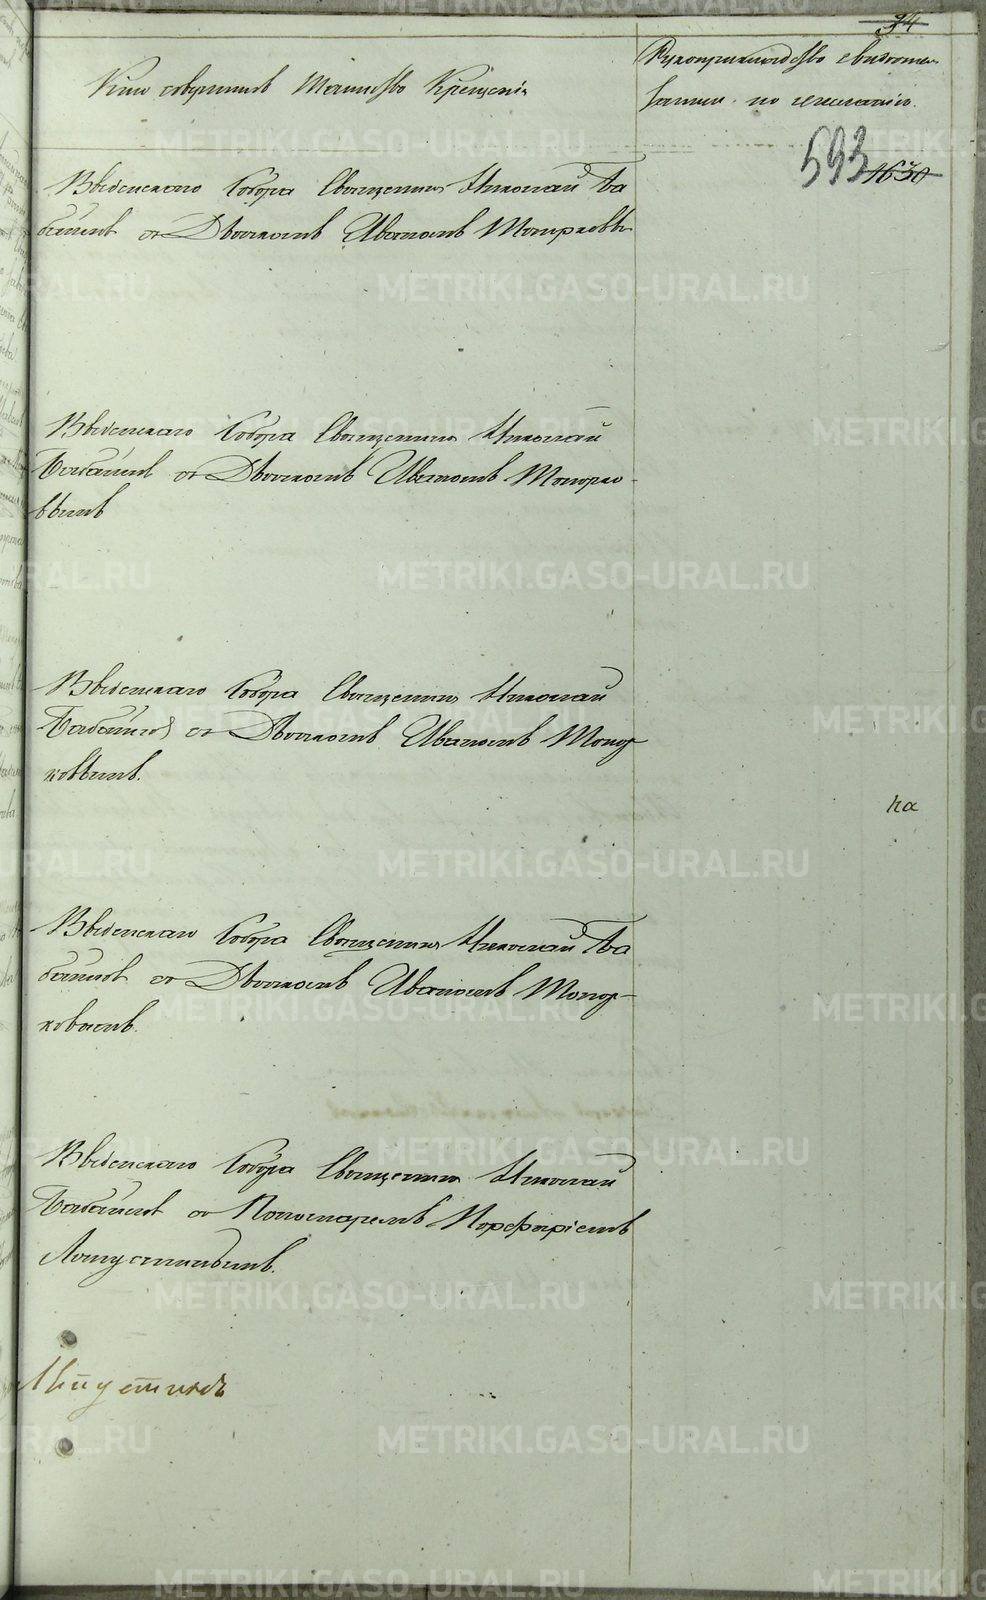 34
Кто совершилъ Таинство Крещенія
Рукоприкладство свидѣте-
лей по желанію.
593 1630
Введенскаго Собора Священникъ Николай Ба
бановъ съ Дьякономъ Иваномъ Топорковы
Введенскаго Собора Священникъ Николай
Бабановъ съ Дьякономъ Иваномъ Топорко-
вымъ
Введенскаго Собора Священникъ Николай
Бабановъ съ Дьякономъ Иваномъ Топор
ковымъ.
на
Введенскаго Собора Священникъ Николай Ба
бановъ съ Дьякономъ Иваномъ Топор-
ковымъ.
Введенскаго Собора Священникъ Николай
Бабановъ съ Пономаремъ Порфиріемъ
METRIKI.GASO-URAL.RU